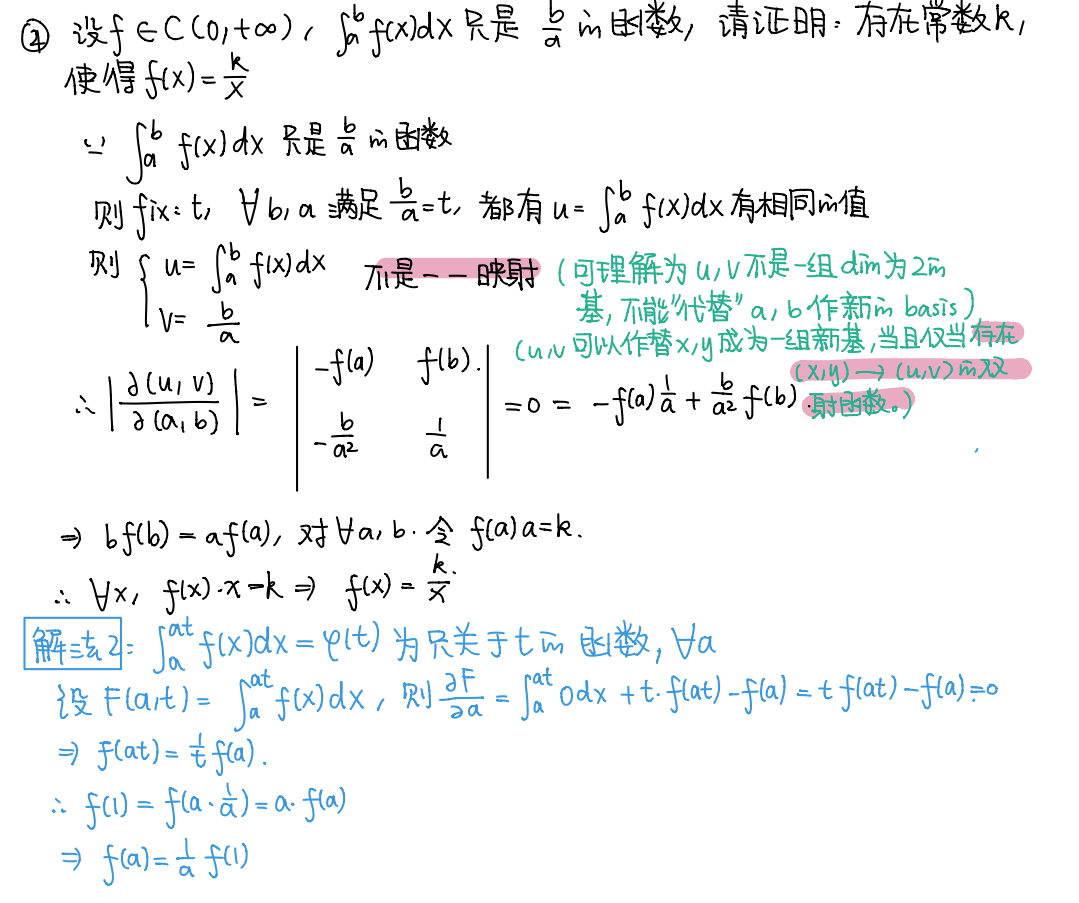 ② 设f∈C(0,+∞), ∫_a^b f(x)dx 只是 b/a 的函数, 请证明: 存在常数k,
使得 f(x)=k/x
∵ ∫_a^b f(x)dx 只是 b/a 的函数
则 fix: t, ∀b,a 满足 b/a=t, 都有 u=∫_a^b f(x)dx 有相同的值
则 { u=∫_a^b f(x)dx 不是一一映射 (可理解为u,v不是一组dim为2的
v=b/a 基, 不能"代替"a,b作新的basis)
(u,v可以作替x,y成为一组新基,当且仅当存在
(x,y)→(u,v)的双
射函数。)
∴ |∂(u,v)/∂(a,b)| = | -f(a) f(b). ; -b/a² 1/a | =0= -f(a)1/a + b/a² f(b).
⇒ bf(b)=af(a), 对∀a,b. 令 f(a)a=k.
∴ ∀x, f(x)·x=k ⇒ f(x)=k/x.
解法2: ∫_a^{at} f(x)dx=φ(t) 为只关于t的函数, ∀a
设 F(a,t)=∫_a^{at} f(x)dx, 则 ∂F/∂a=∫_a^{at} 0dx+t·f(at)-f(a)=tf(at)-f(a)=0
⇒ f(at)=1/t f(a).
∴ f(1)=f(a·1/a)=a·f(a)
⇒ f(a)=1/a f(1)